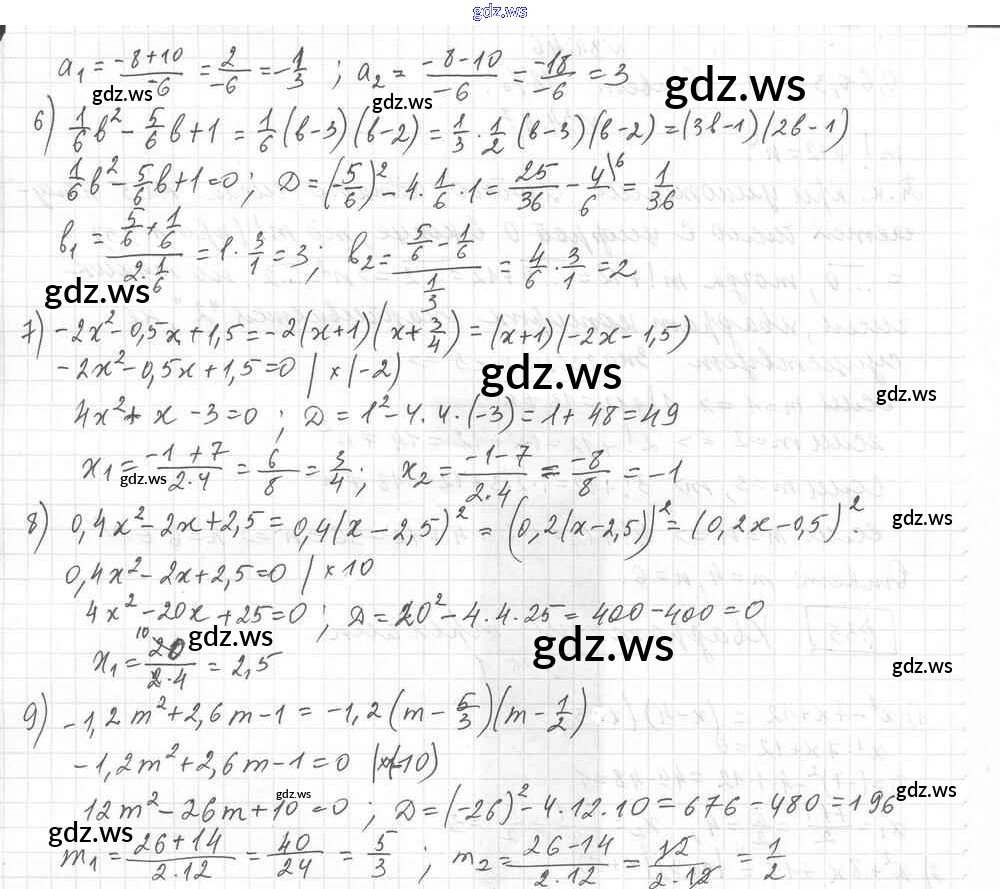 gdz.ws
a₁ = (-8+10)/(-6) = 2/(-6) = -1/3 ; a₂ = (-8-10)/(-6) = (-18)/(-6) = 3
gdz.ws
gdz.ws
gdz.ws
6) 1/6 b² - 5/6 b + 1 = 1/6 (b-3)(b-2) = 1/3 · 1/2 (b-3)(b-2) = (3b-1)(2b-1)
1/6 b² - 5/6 b + 1 = 0; D = (-5/6)² - 4 · 1/6 · 1 = 25/36 - 4\⁶/6 = 1/36
b₁ = (5/6 + 1/6)/(2·1/6) = 1 · 3/1 = 3; b₂ = (5/6 - 1/6)/(1/3) = 4/6 · 3/1 = 2
gdz.ws
7) -2x² - 0,5x + 1,5 = -2(x+1)(x + 3/4) = (x+1)(-2x - 1,5)
-2x² - 0,5x + 1,5 = 0 | × (-2)
gdz.ws
gdz.ws
4x² + x - 3 = 0 ; D = 1² - 4·4·(-3) = 1 + 48 = 49
x₁ = (-1+7)/(2·4) = 6/8 = 3/4; x₂ = (-1-7)/(2·4) = (-8)/8 = -1
gdz.ws
8) 0,4x² - 2x + 2,5 = 0,4(x - 2,5)² = (0,2(x-2,5))² = (0,2x - 0,5)²
gdz.ws
0,4x² - 2x + 2,5 = 0 | × 10
4x² - 20x + 25 = 0 ; D = 20² - 4·4·25 = 400 - 400 = 0
gdz.ws
gdz.ws
x₁ = 20/(2·4) = 2,5
10
gdz.ws
9) -1,2m² + 2,6m - 1 = -1,2(m - 5/3)(m - 1/2).
-1,2m² + 2,6m - 1 = 0 |×(-10)
gdz.ws
gdz.ws
12m² - 26m + 10 = 0 ; D = (-26)² - 4·12·10 = 676 - 480 = 196
gdz.ws
m₁ = (26+14)/(2·12) = 40/24 = 5/3 ; m₂ = (26-14)/(2·12) = 12/(2·12) = 1/2